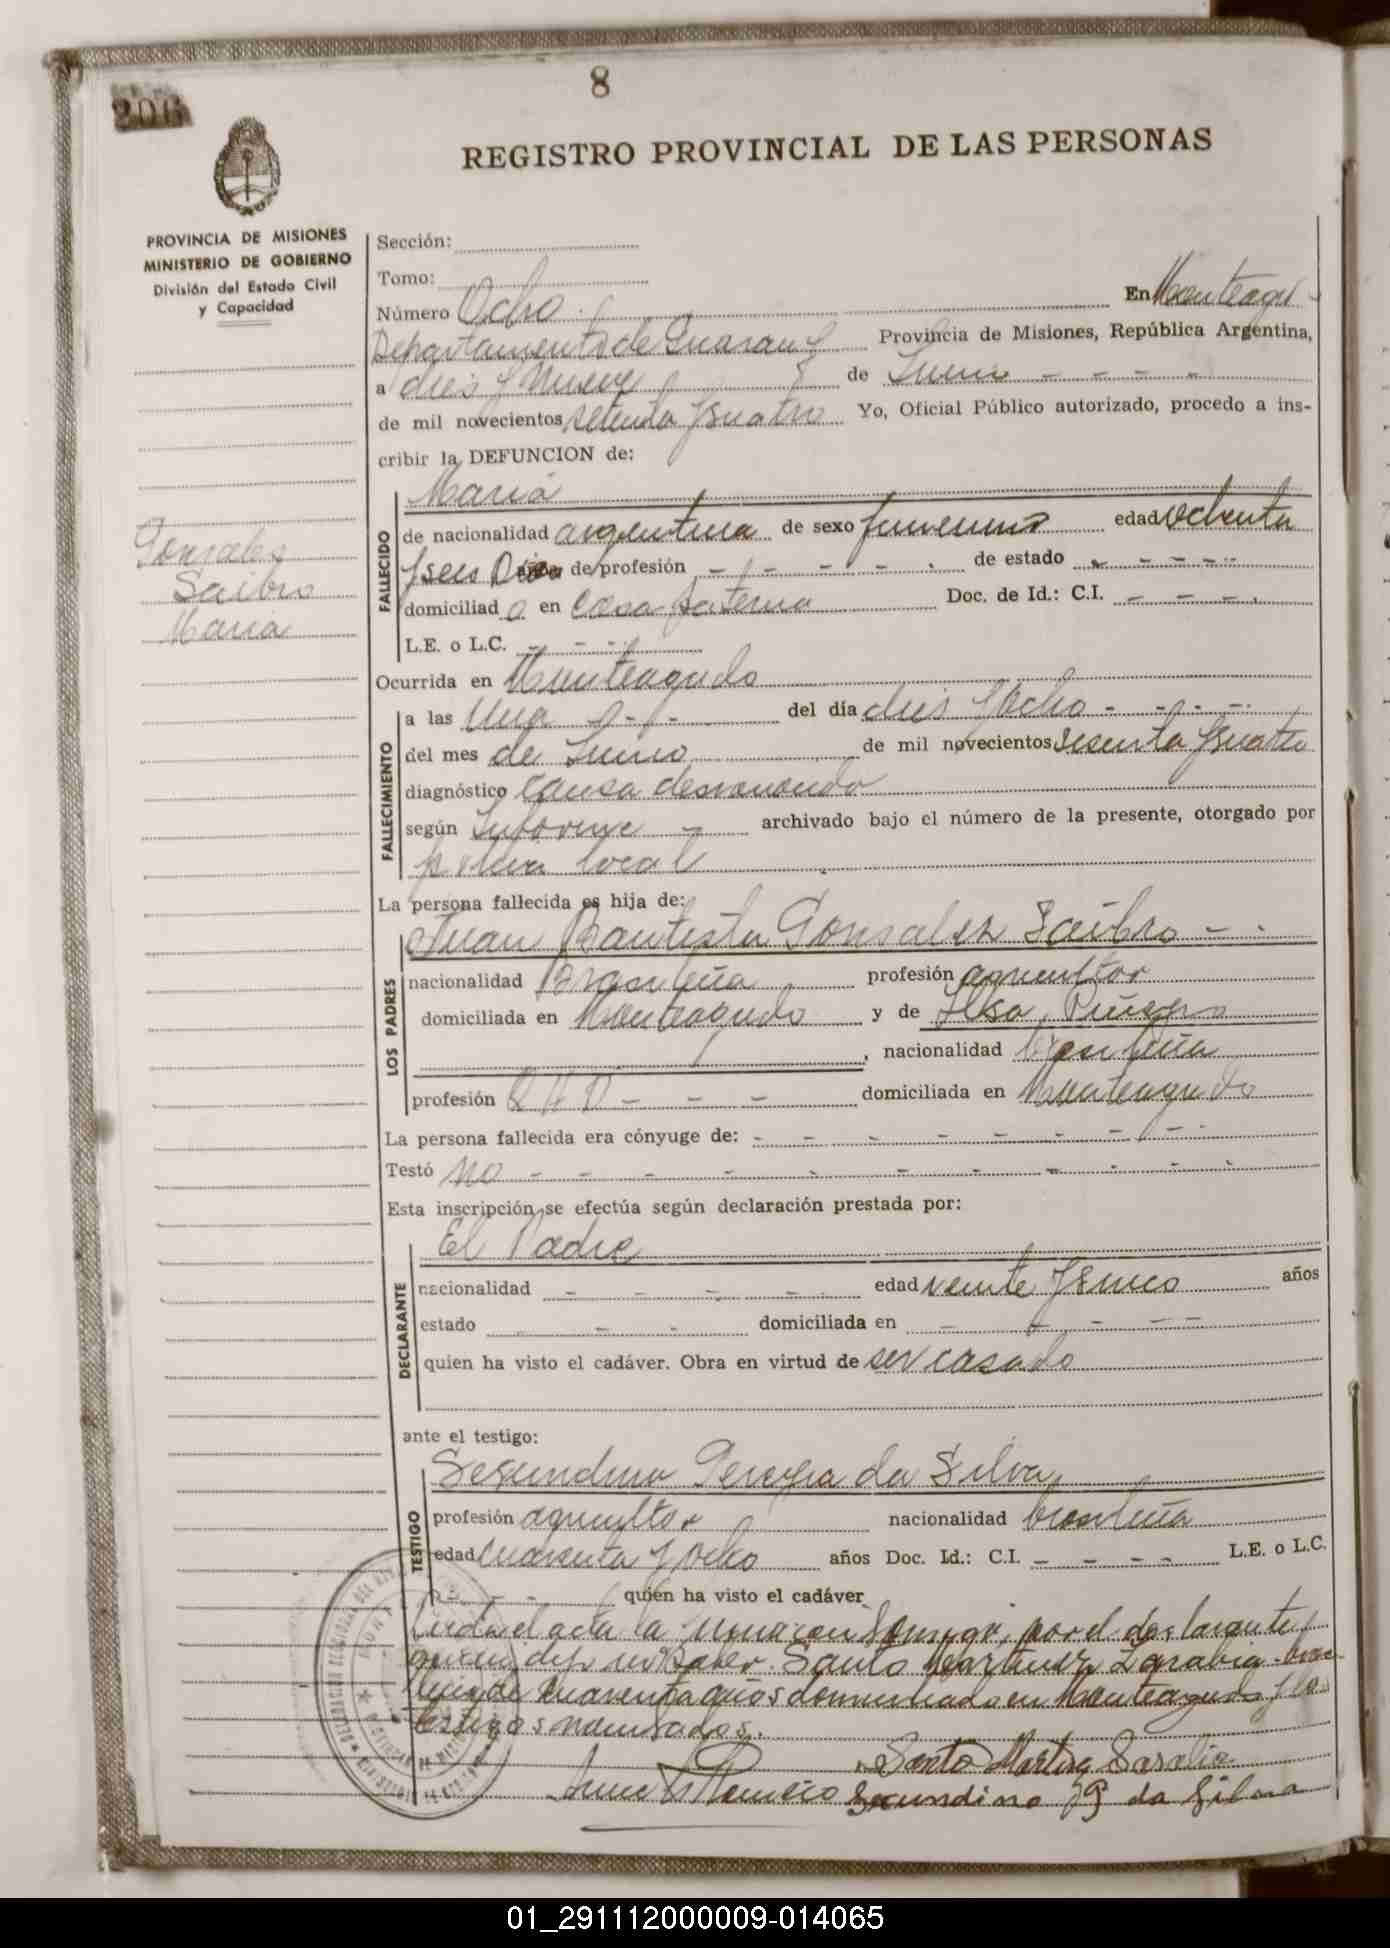 8
206
REGISTRO PROVINCIAL DE LAS PERSONAS
PROVINCIA DE MISIONES
MINISTERIO DE GOBIERNO
División del Estado Civil
y Capacidad
Gonsales
Saibro
Maria
Sección:
Tomo:
Número Ocho En Monteagu-
Departamento de Guarani Provincia de Misiones, República Argentina,
a dies y Nueve de Junio - - - -
de mil novecientos setenta y cuatro Yo, Oficial Público autorizado, procedo a ins-
cribir la DEFUNCION de:
Maria
FALLECIDO
de nacionalidad argentina de sexo femenino edad ochenta
y seis Dias de profesión - - - - - de estado - - - -
domiciliad o en casa paterna Doc. de Id.: C.I. - - - -
L.E. o L.C. - - -
Ocurrida en Monteagudo
FALLECIMIENTO
a las Una - - - del día dies y ocho - - - -
del mes de Junio de mil novecientos setenta y cuatro
diagnóstico causa desconosida
según Informe - archivado bajo el número de la presente, otorgado por
policia local
La persona fallecida es hija de:
LOS PADRES
Juan Bautista Gonsalez Saibro - -
nacionalidad Brasileña profesión agricultor
domiciliada en Monteagudo y de Ilsa
, nacionalidad brasileña
profesión Q H D - - - domiciliada en Monteagudo
La persona fallecida era cónyuge de: - - - - - - - -
Testó No - - - - - - - - -
Esta inscripción se efectúa según declaración prestada por:
DECLARANTE
El Padre
nacionalidad - - - - edad veinte y cinco años
estado - - - domiciliada en - - - - -
quien ha visto el cadáver. Obra en virtud de ser casado
ante el testigo:
TESTIGO
Segundino Pereyra da Silva
profesión agricultor nacionalidad brasileña
edad cuarenta y ocho años Doc. Id.: C.I. - - - - L.E. o L.C.
quien ha visto el cadáver
Leida el acta la conmigo, por el declarante
quien dijo no saber Santo Martinez Sarabia bra-
sileño de cuarenta años domiciliado en Monteagudo y los
testigos nombrados.
Santo Martinez
Secundino P da Silva
01_291112000009-014065